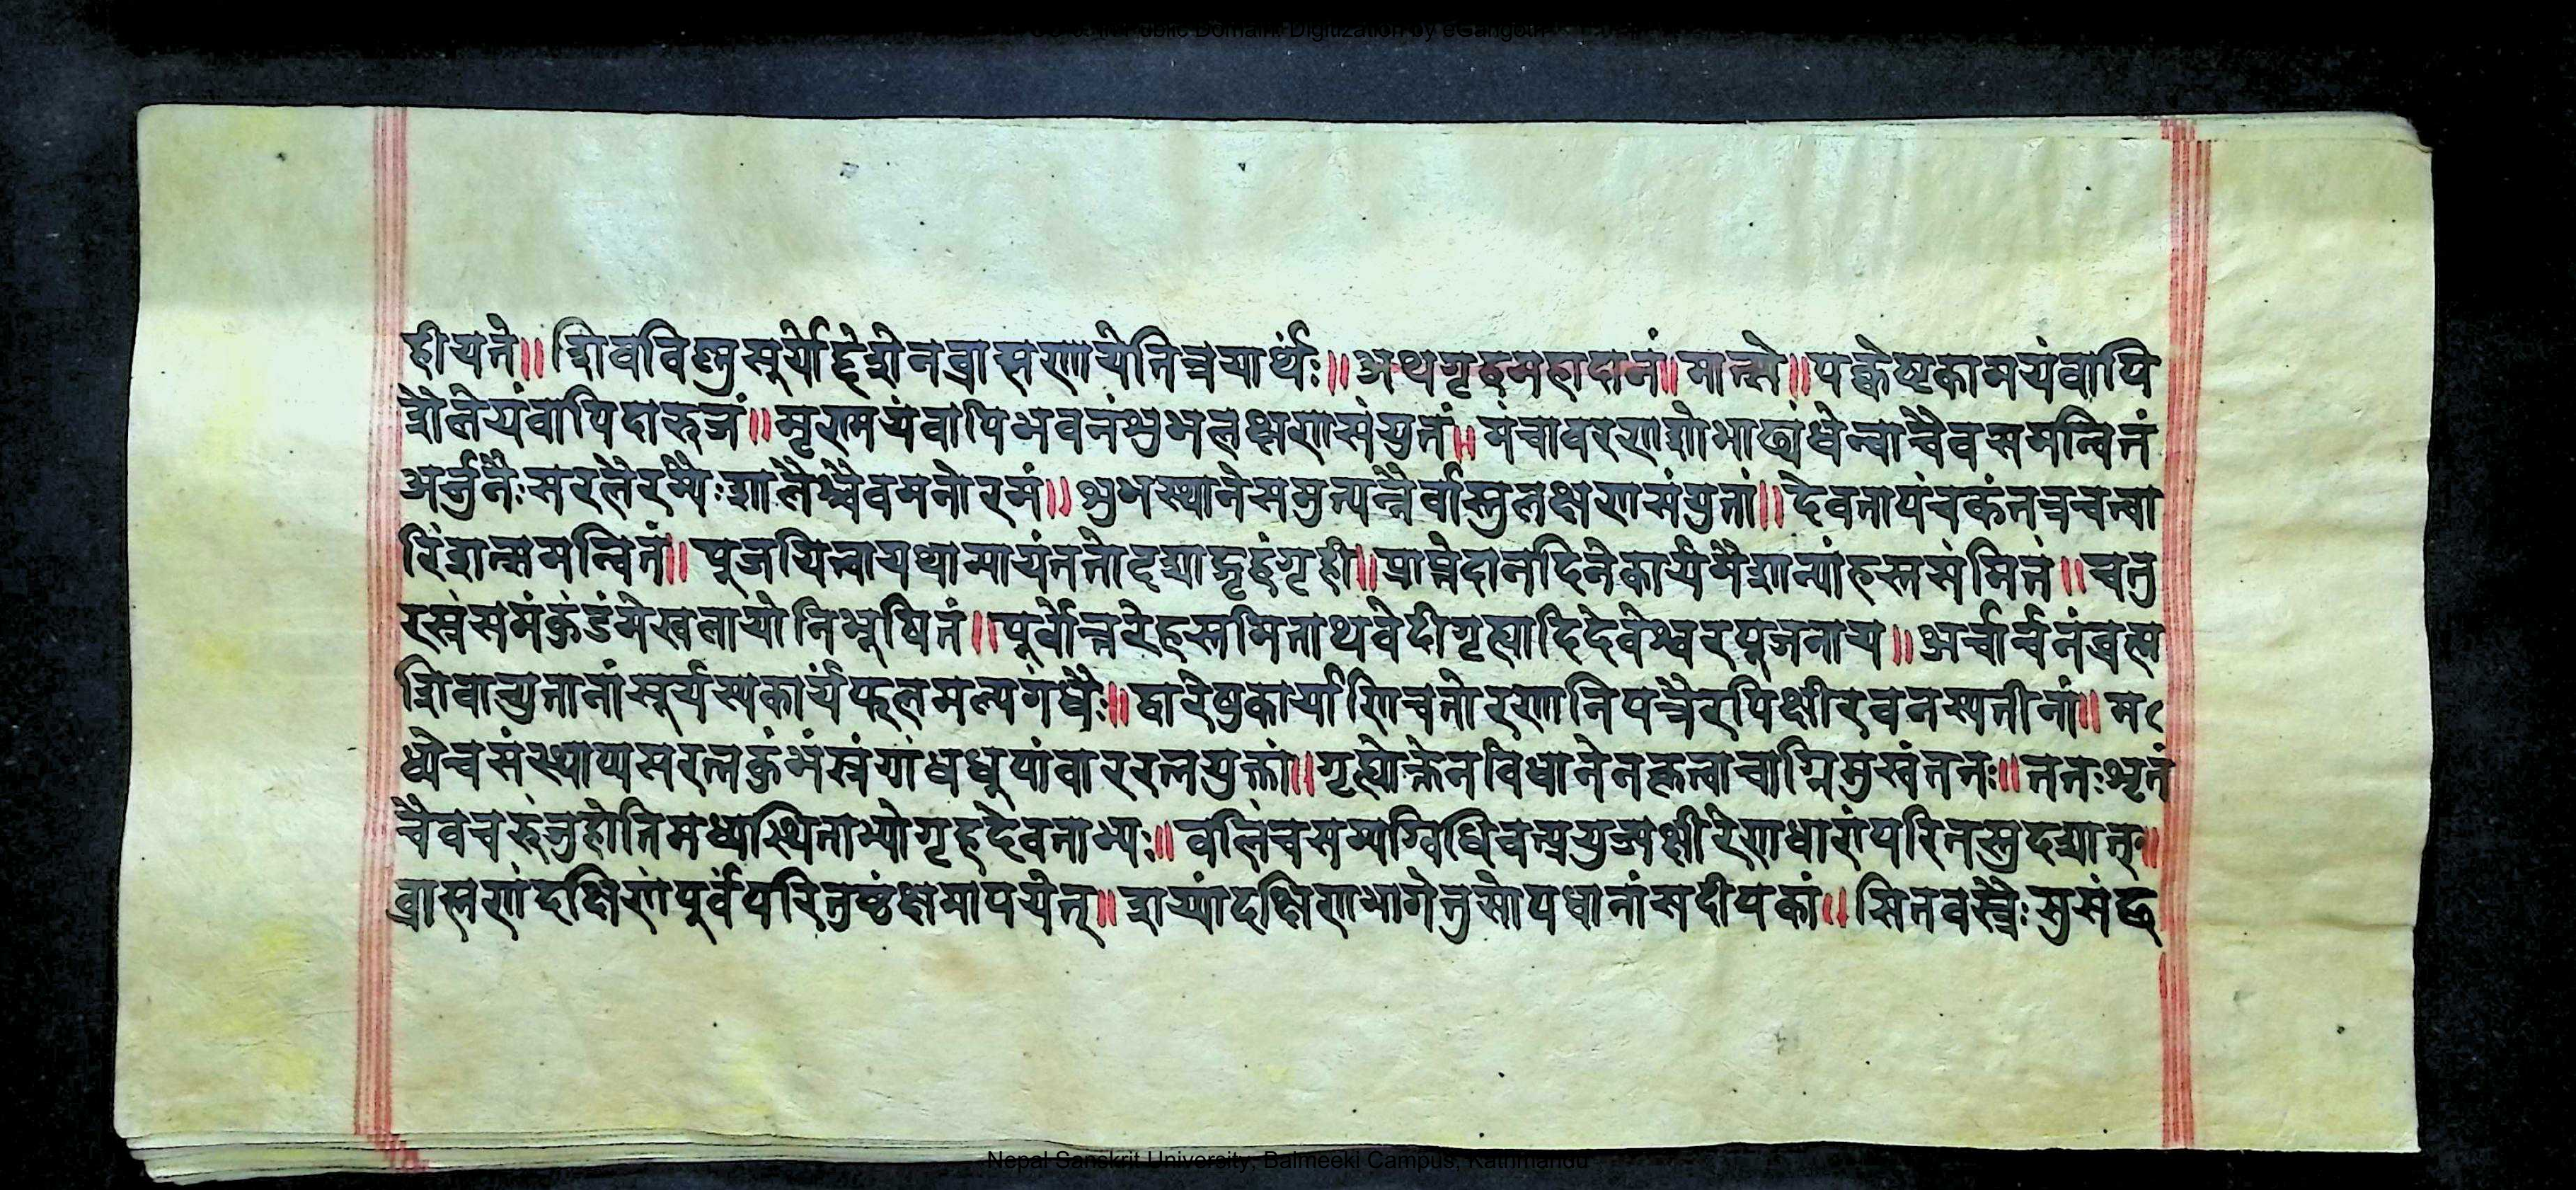 In Public Domain. Digitization by eGangotri
हीयते॥ शिवविष्णुसूर्योद्देशेनब्राह्मणायेतित्रयार्थः॥ अथगृहमहादानं॥ मात्स्ये॥ पक्वेष्टकामयंवापि
शैलेयंवापिदारुजं॥ मृण्मयंवापिभवनंशुभलक्षणसंयुतं॥ मंचावरणशोभाढ्यंधेन्वाचैवसमन्वितं
अर्जुनैःसरलैरम्यैःशालैश्चैवमनोरमं॥ शुभस्थानेसमुत्पन्नैर्वास्तुलक्षणसंयुतां॥ देवतापंचकंतत्रचत्वा
रिंशत्समन्वितं॥ पूजयित्वायथान्यायंततोदद्याद्गृहंगृही॥ प्राप्तेदानदिनेकार्यमैशान्यांहस्तसंमितं॥ चतु
रस्रंसमंकुंडंमेखलायोनिभूषितं॥ पूर्वोत्तरेहस्तमिताथवेदीगृह्यादिदेवेश्वरपूजनाय॥ अर्चार्चनंब्रह्म
शिवाच्युतानांसूर्यस्यकार्यंफलमल्यगंधैः॥ द्वारेषुकार्याणिचतोरणानिपत्रैरपिक्षीरवनस्पतीनां॥ म
ध्येचसंस्थाप्यसरत्नकुंभंस्रंगंधधुपांवाररत्नयुक्तां॥ गृह्योक्तेनविधानेनकृत्वाचाग्निमुखंततः॥ ततःशृतं
चैवचरुंजुहोतिमध्यास्थिताभ्योगृहदेवताभ्यः॥ वलिंचसम्यग्विधिवत्प्रयुज्यक्षीरेणधारांपरितस्तुदद्यात्॥
ब्राह्मणंदक्षिणंपूर्वंपरितुष्टंक्षमापयेत्॥ शय्यांदक्षिणभागेतुसोपधानांसदीपकां॥ सितवस्त्रैःसुसंछ
Nepal Sanskrit University, Balmeeki Campus, Kathmandu